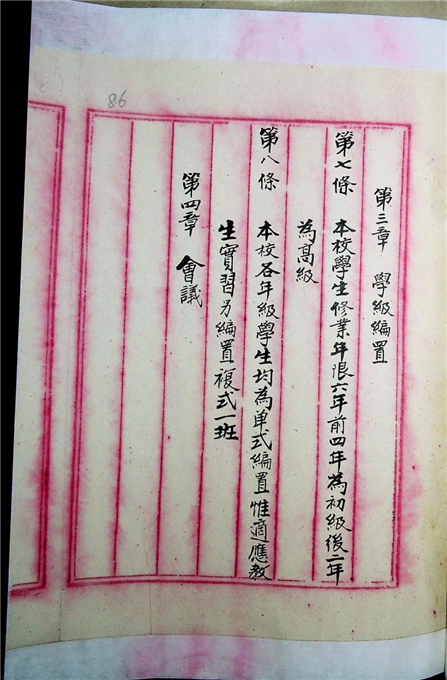 第三章　學級編置
第七條　本校學生修業年限六年前四年為初級後二年
為高級
第八條　本校各年級學生均為单式編置惟適應教
生實習另編置複式一班
第四章　會議
86